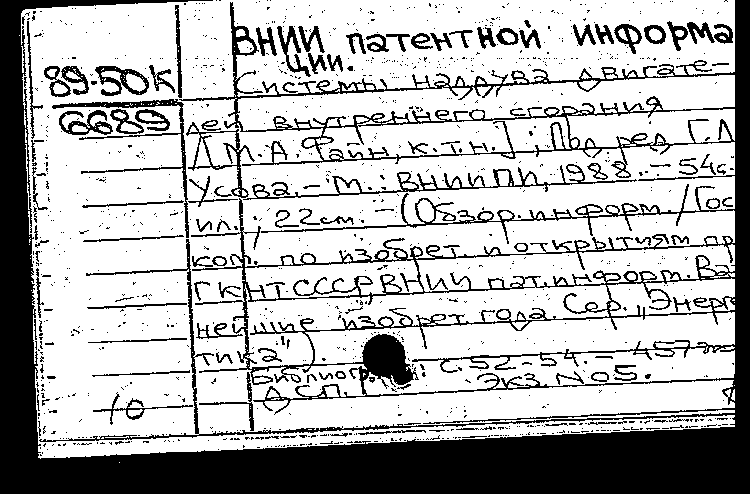 ВНИИ патентной информа
ции.
89-50К
6689
Системы наддува двигате-
лей внутреннего сгорания
[М.А. Файн, к.т.н.]; Под ред. Г.Л
Усова.-М.: ВНИИПИ, 1988.-54с.
ил.; 22см.-(Обзор.информ./Гос
ком. по изобрет. и открытиям пр
ГКНТ СССР, ВНИИ пат.информ. Ва
нейшие изобрет. года. Сер. „Энерге
тика").
с.52-54.- 457
ДСП. Экз. N 05.
10